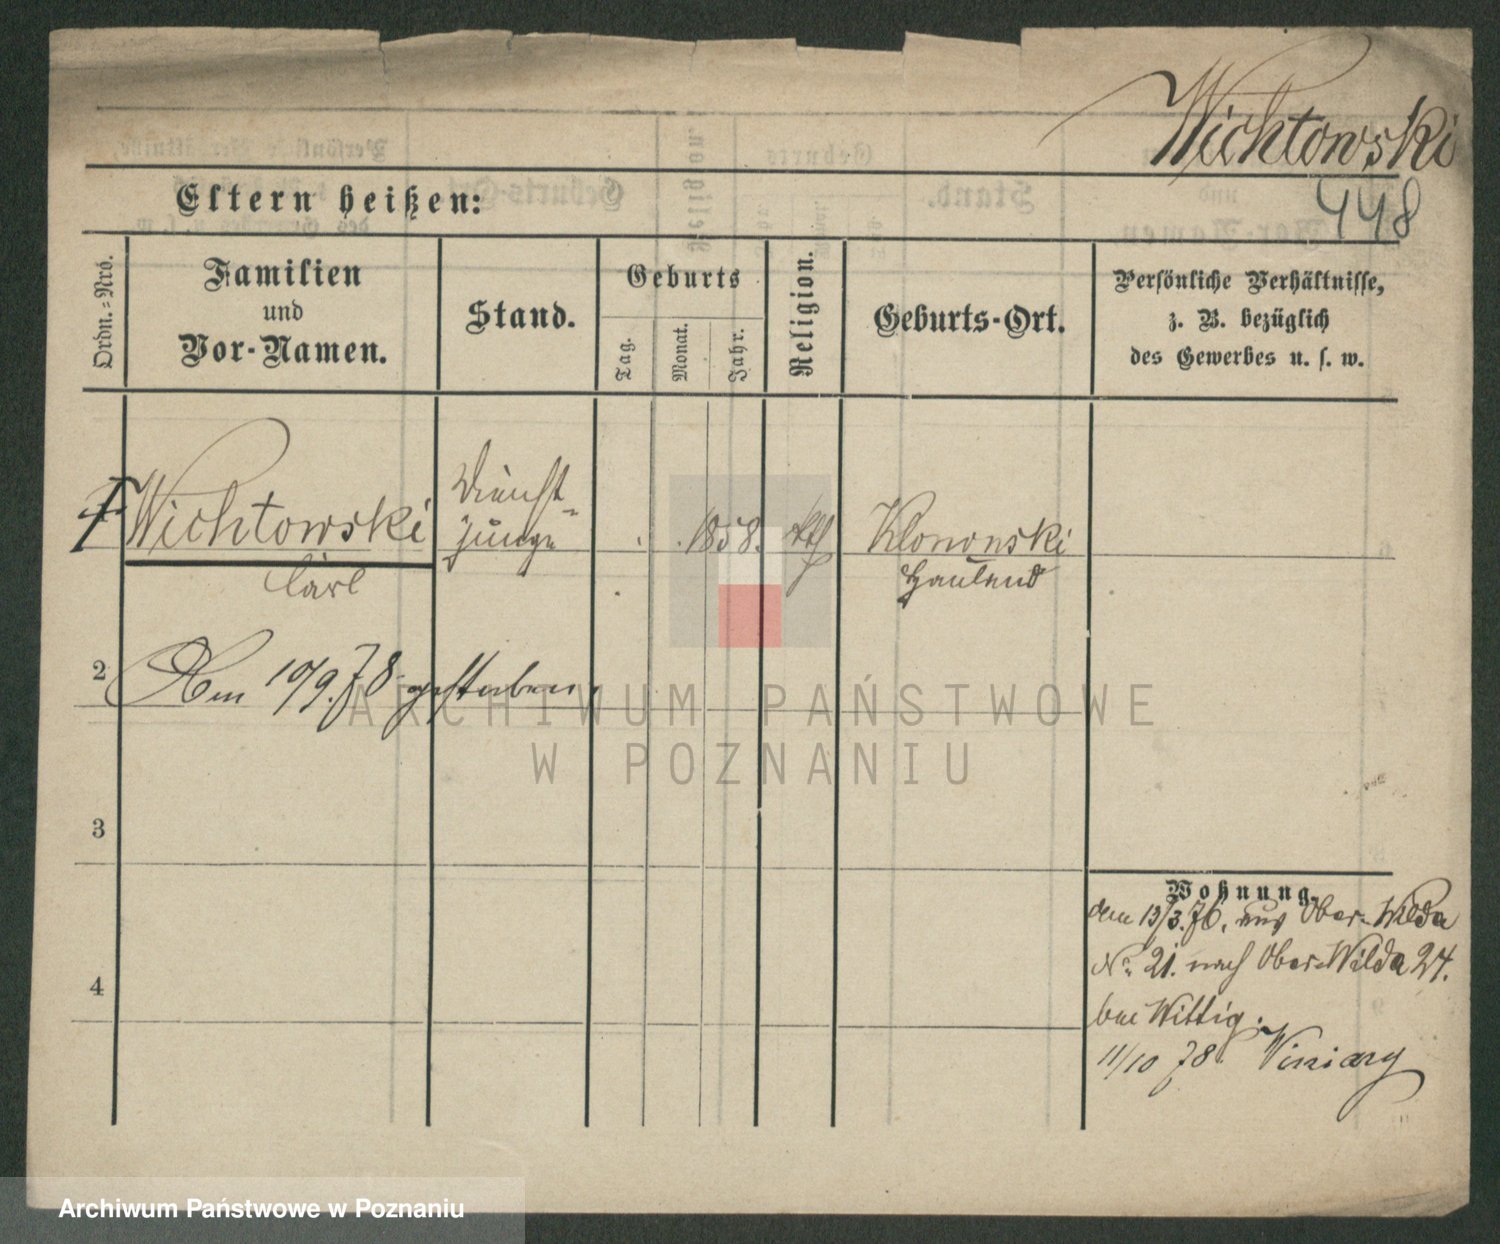 Wichtowski
448
Eltern heißen:
Ordn.-Nro.
Familien
und
Vor-Namen.
Stand.
Geburts
Tag.
Monat.
Jahr.
Religion.
Geburts-Ort.
Persönliche Verhältnisse,
z. B. bezüglich
des Gewerbes u. s. w.
Wichtowski
Carl
Dienst-
junge
1858.
kth
Klononski
Hauland
2
Am 10/9. 78 gestorben.
3
4
Wohnung.
den 13/3. 76. aus Ober-Wilda
No 21. nach Ober-Wilda 24.
bei Wittig.
11/10 78. Winiary
ARCHIWUM PAŃSTWOWE
W POZNANIU
Archiwum Państwowe w Poznaniu